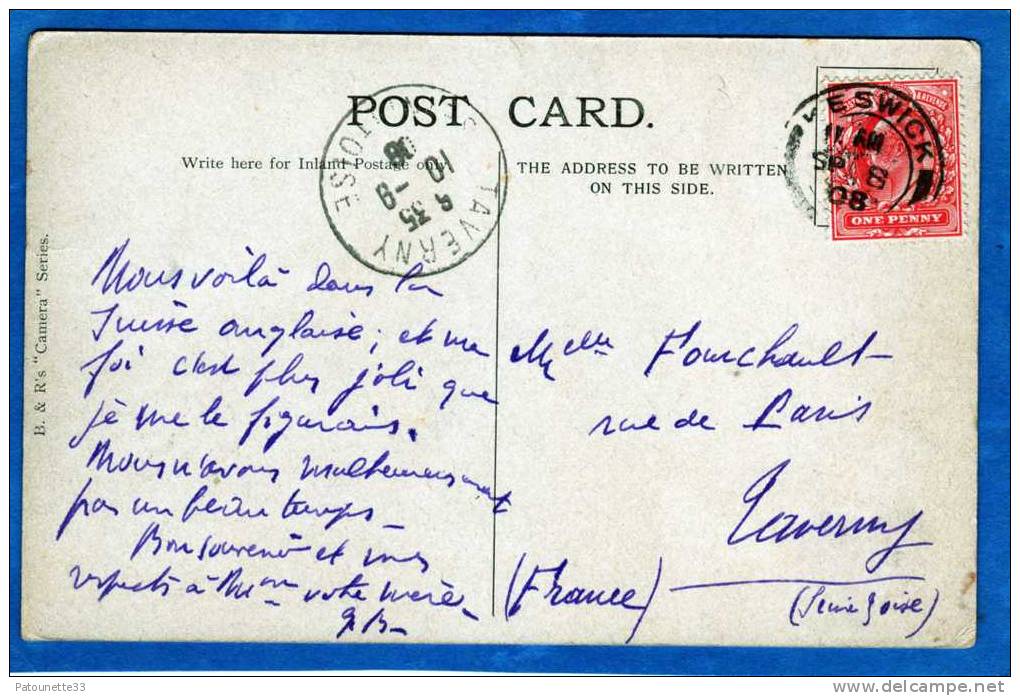 POST CARD.
Write here for Inland Postage only
THE ADDRESS TO BE WRITTEN
ON THIS SIDE.
B. & R's "Camera" Series.
KESWICK
11 AM
SP 8
08
REVENUE
ONE PENNY
TAVERNY
OISE
6 35
10 -9
08
Nous voilà dans la
Suisse anglaise; et ma
foi c'est plus joli que
je me le figurais.
Nous n'avons malheureusement
pas un beau temps_
Bon souvenir et mes
respects à Mme votre mère_
Melle Fouchault
rue de Paris
Taverny
(France)
(Seine & Oise)
Patounette33
delcampe.net